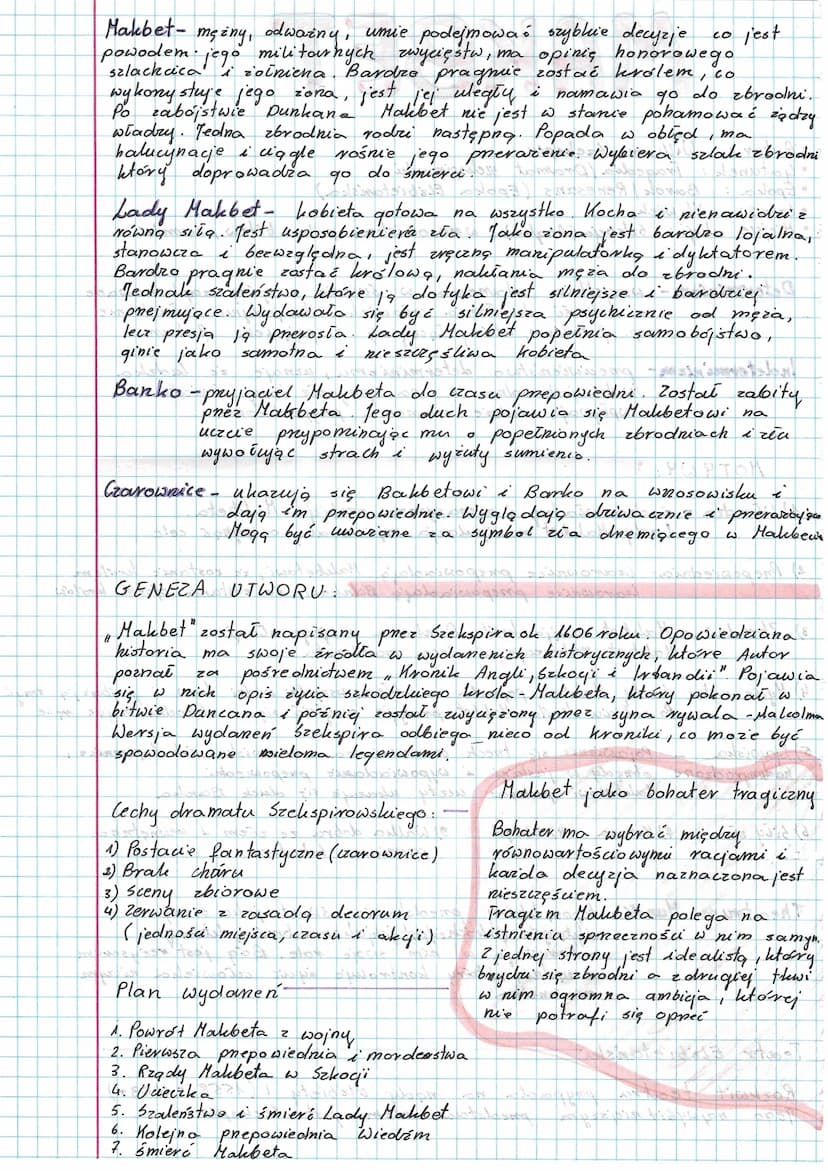 Makbet- mężny, odważny, umie podejmować szybkie decyzje co jest
powodem jego militarnych zwycięstw, ma opinię honorowego
szlachcica i żołnierza. Bardzo pragnie zostać królem, co
wykorzystuje jego żona, jest jej uległy i namawia go do zbrodni.
Po zabójstwie Dunkana Makbet nie jest w stanie pohamować żądzy
władzy. Jedna zbrodnia rodzi następną. Popada w obłęd, ma
halucynacje i ciągle rośnie jego przerażenie. Wybiera szlak zbrodni
który doprowadza go do śmierci.
Lady Makbet- kobieta gotowa na wszystko. Kocha i nienawidzi z
równą siłą. Jest usposobieniem zła. Jako żona jest bardzo lojalna,
stanowcza i bezwzględna, jest zręczną manipulatorką i dyktatorem.
Bardzo pragnie zostać królową, nakłania męża do zbrodni.
Jednak szaleństwo, które ją dotyka jest silniejsze i bardziej
przejmujące. Wydawało się być silniejsza psychicznie od męża,
lecz presja ją przerosła. Lady Makbet popełnia samobójstwo,
ginie jako samotna i nieszczęśliwa kobieta
Banko - przyjaciel Makbeta do czasu przepowiedni. Został zabity
przez Makbeta. Jego duch pojawia się Makbetowi na
uczcie przypominając mu o popełnionych zbrodniach i złu
wywołując strach i wyżuty sumienia.
Czarownice - ukazują się Bakbetowi i Banko na wrzosowisku i
dają im przepowiednie. Wyglądają dziwacznie i przerażająco
Mogą być uważane za symbol zła drzemiącego w Makbecie
GENEZA UTWORU:
„Makbet" został napisany przez Szekspira ok 1606 roku. Opowiedziana
historia ma swoje źródła w wydarzeniach historycznych, które Autor
poznał za pośrednictwem „Kronik Angli, Szkocji i Irlandii". Pojawia
się w nich opis życia szkodzkiego króla - Makbeta, który pokonał w
bitwie Duncana i później został zwyciężony przez syna rywala - Malcolma
Wersja wydarzeń Szekspira odbiega nieco od kroniki, co może być
spowodowane wieloma legendami.
Cechy dramatu Szekspirowskiego:
1) Postacie fantastyczne (czarownice)
2) Brak chóru
3) Sceny zbiorowe
4) Zerwanie z zasadą decorum
(jedności miejsca, czasu i akcji)
Makbet jako bohater tragiczny
Bohater ma wybrać między
równowartościowymi racjami i
każda decyzja naznaczona jest
nieszczęściem.
Tragizm Makbeta polega na
istnieniu sprzeczności w nim samym.
Z jednej strony jest idealistą, który
brzydzi się zbrodni a z drugiej tkwi
w nim ogromna ambicja, której
nie potrafi się oprzeć
Plan wydarzeń
1. Powrót Makbeta z wojny
2. Pierwsza przepowiednia i morderstwa
3. Rządy Makbeta w Szkocji
4. Ucieczka
5. Szaleństwo i śmierć Lady Makbet
6. Kolejna przepowiednia Wiedźm
7. Śmierć Makbeta